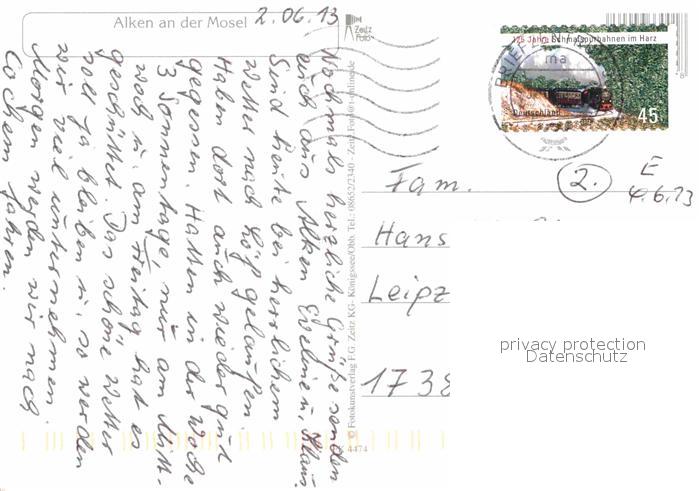 Alken an der Mosel
2.06.13
Nochmals herzliche Grüße senden
auch aus Alken Eveline u. Klaus.
Sind heute bei herrlichem
Wetter nach Löf gelaufen.
Haben dort auch wieder gut
gegessen. Hatten in der Woche
3 Sonnentage, nur am Mitt-
woch u. am Freitag hat es
geschüttet. Das schöne Wetter
soll ja bleiben u. so werden
wir viel unternehmen.
Morgen werden wir nach
Cochem fahren.
Zeitz
Foto
© Fotokunstverlag F.G. Zeitz KG - Königssee/Obb. Tel.: 08652/2340 - Zeitz Foto
4474
125 Jahre Schmalspurbahnen im Harz
Deutschland
45
BRIEF
ma
Fam.
2.
E
4.6.13
Hans
Leipz
1738
privacy protection
Datenschutz